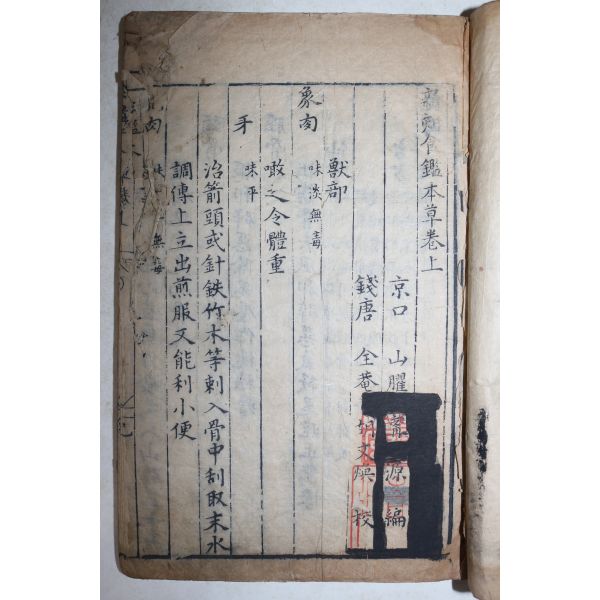 新刻食鑑本草卷上
京口 山臞 源 編
錢唐 全菴 胡文煥 校
獸部
象肉 味淡無毒
噉之令體重
牙 味平
治箭頭或針鉄竹木等刺入骨中刮取末水
調傅上立出煎服又能利小便
肉 無毒